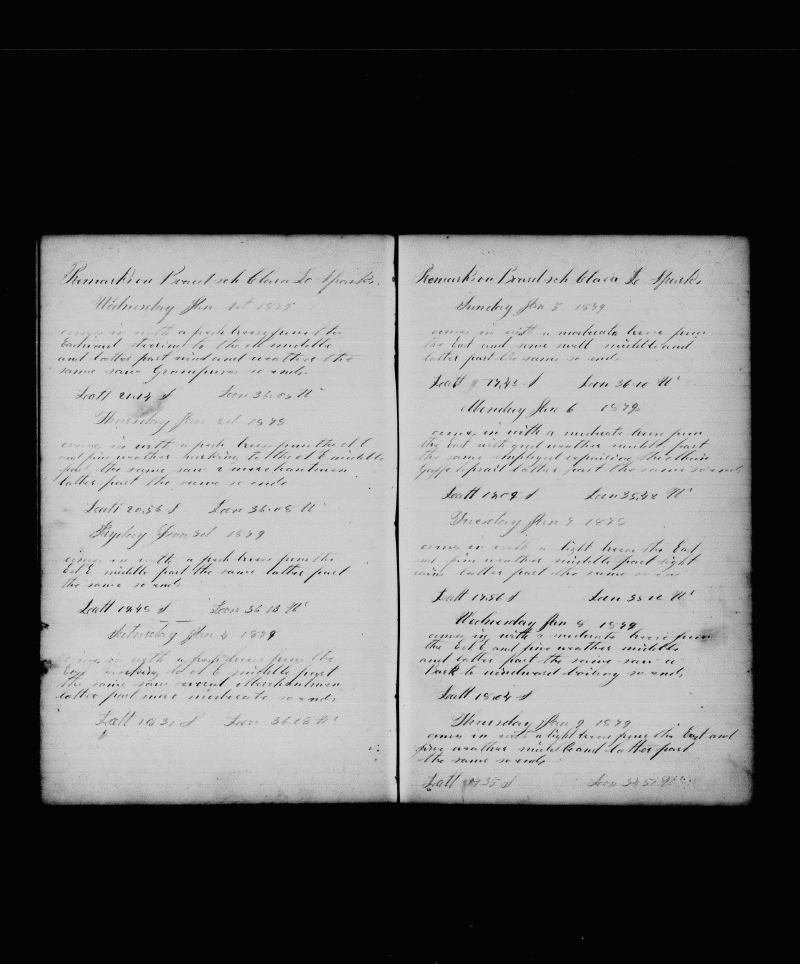 Remarks on Board sch Clara L Sparks
Wednesday Jan 1st 1879
comes in with a fresh breese from the
Eastward steering to the middle
and latter part wind and weather the
same saw Grampuses so ends
Latt 21.14 S Lon 36.05 W
Thursday Jan 2d 1879
comes in with a fresh breese from the E
and fine weather to the E middle
part the same saw 2 merchantmen
latter part the same so ends
Latt 20.56 S Lon 36.08 W
Fryday Jan 3d 1879
comes in with a fresh breese from the
E middle part the same latter part
the same so ends
Latt 19.48 S Lon 36.13 W
Saturday Jan 4 1879
comes in with a fresh breese from the
East to E middle part
the same saw several Merchantmen
latter part more moderate so ends
Latt S Lon 36.18 W
Remarks on Board sch Clara L Sparks
Sunday Jan 5 1879
comes in with a moderate breese from
the East and some swell middle and
latter part the same so ends
Latt 17.42 S Lon 36.10 W
Monday Jan 6 1879
comes in with a moderate breese from
the East with good weather middle part
the same employed repairing the Main
Gafftopsail latter part the same so ends
Latt S Lon 35.42 W
Tuesday Jan 7 1879
comes in with a light breese the East
and fine weather middle part light
latter part the same so ends
Latt 17.56 S Lon 35.10 W
Wednesday Jan 8 1879
comes in with a moderate breese from
the E and fine weather middle
and latter part the same saw a
Bark to windward so ends
Latt 18.04 S
Thursday Jan 9 1879
comes in with a light breese from the East and
fine weather middle and latter part
the same so ends
Latt S Lon 34.51 W